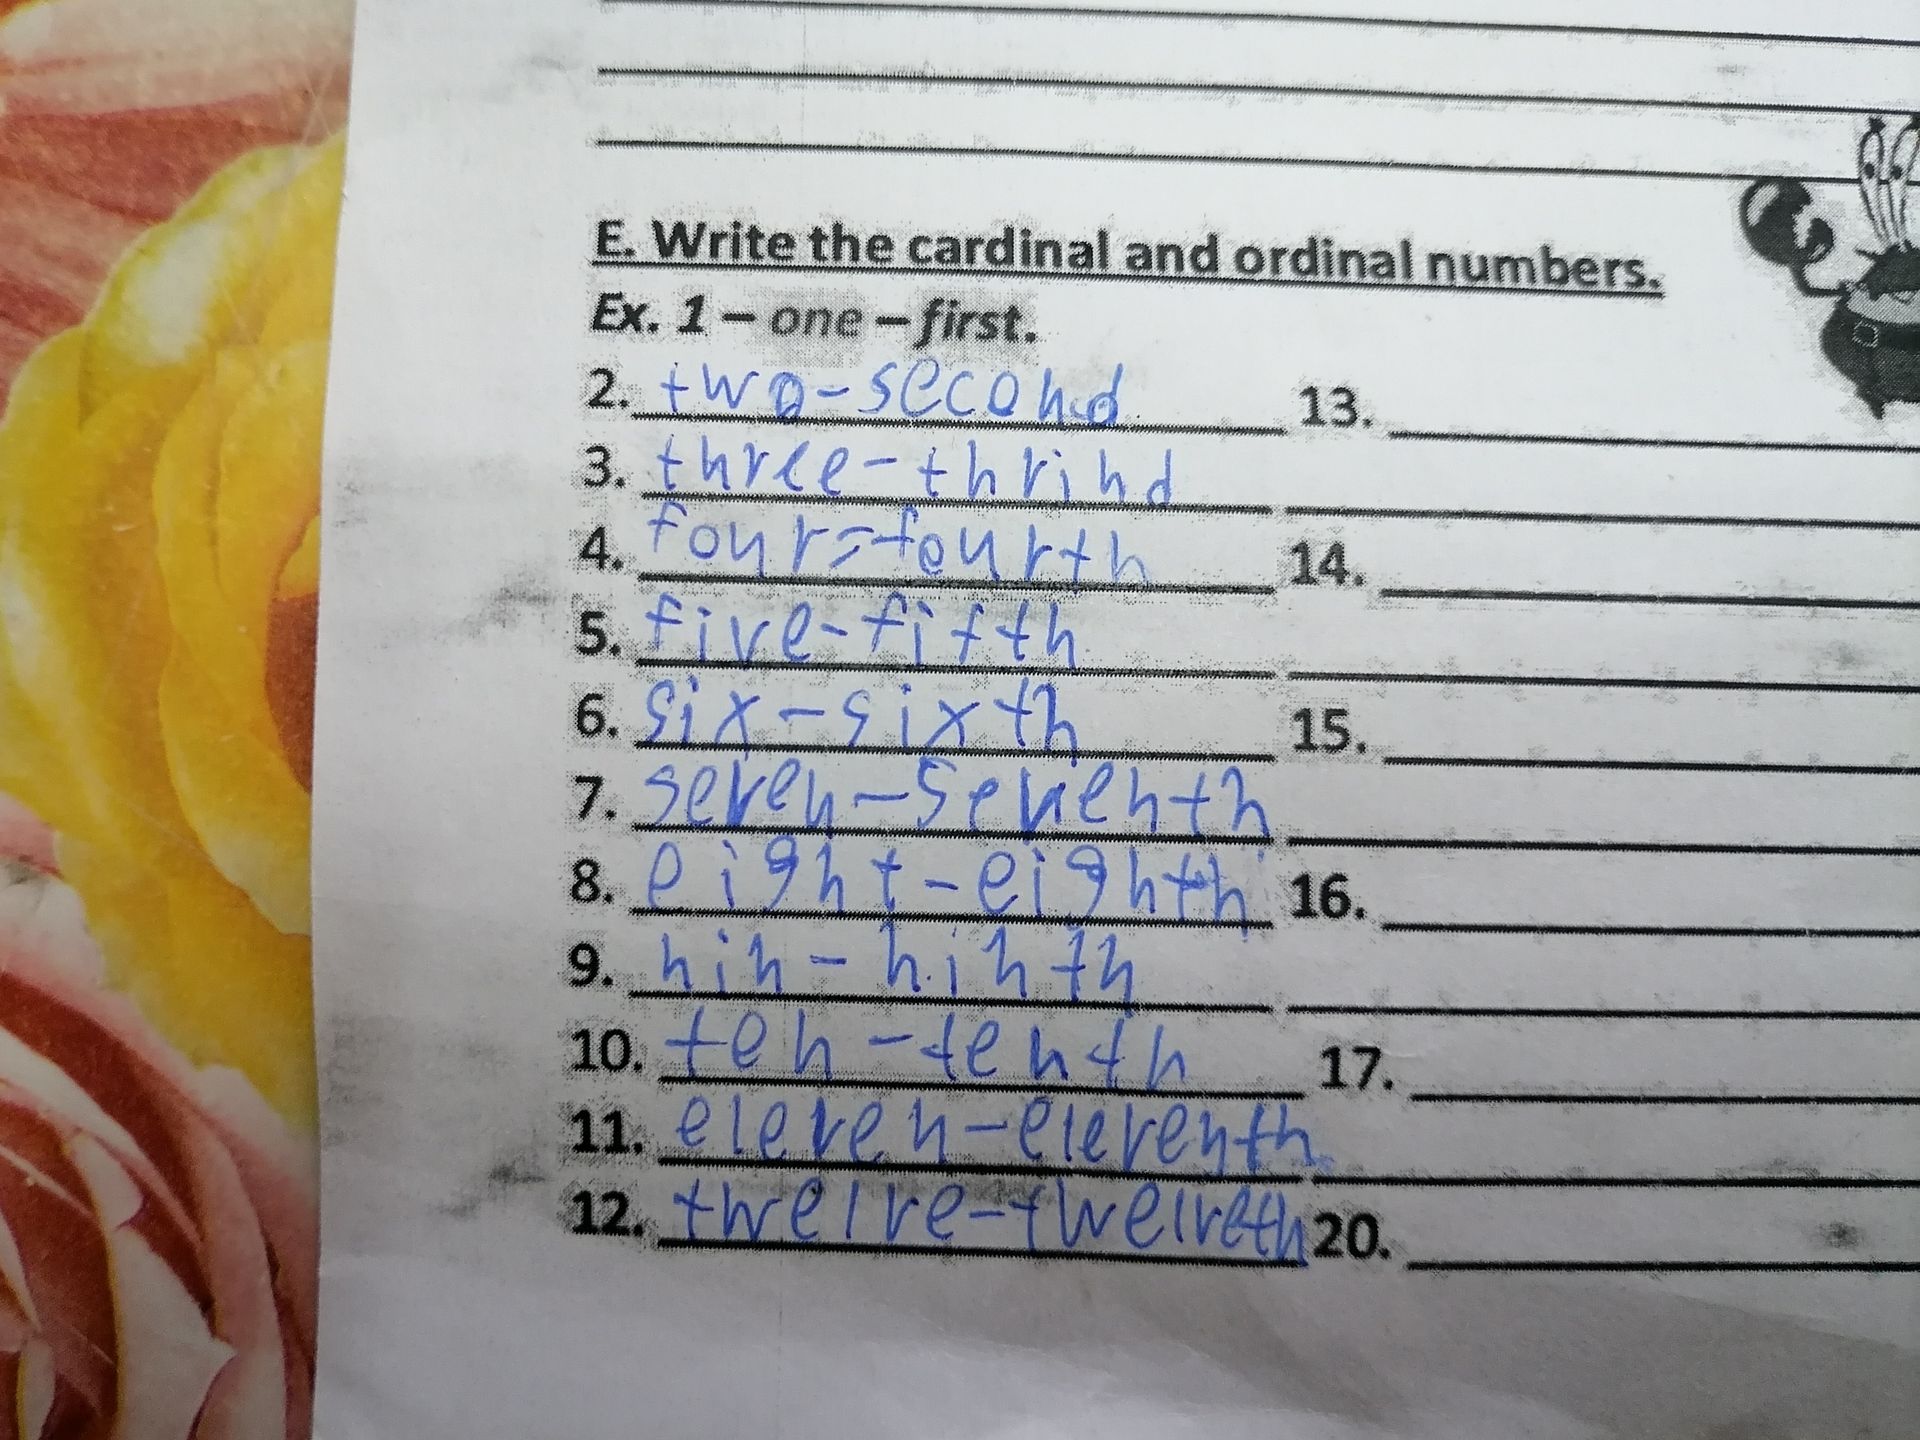 E. Write the cardinal and ordinal numbers.
Ex. 1 – one – first.
2. two-second 13.
3. three-thrind
4. four=fourth 14.
5. five-fifth
6. six-sixth 15.
7. seven-seventh
8. eight-eighth 16.
9. nin-ninth
10. ten-tenth 17.
11. eleven-eleventh
12. twelve-twelveth 20.